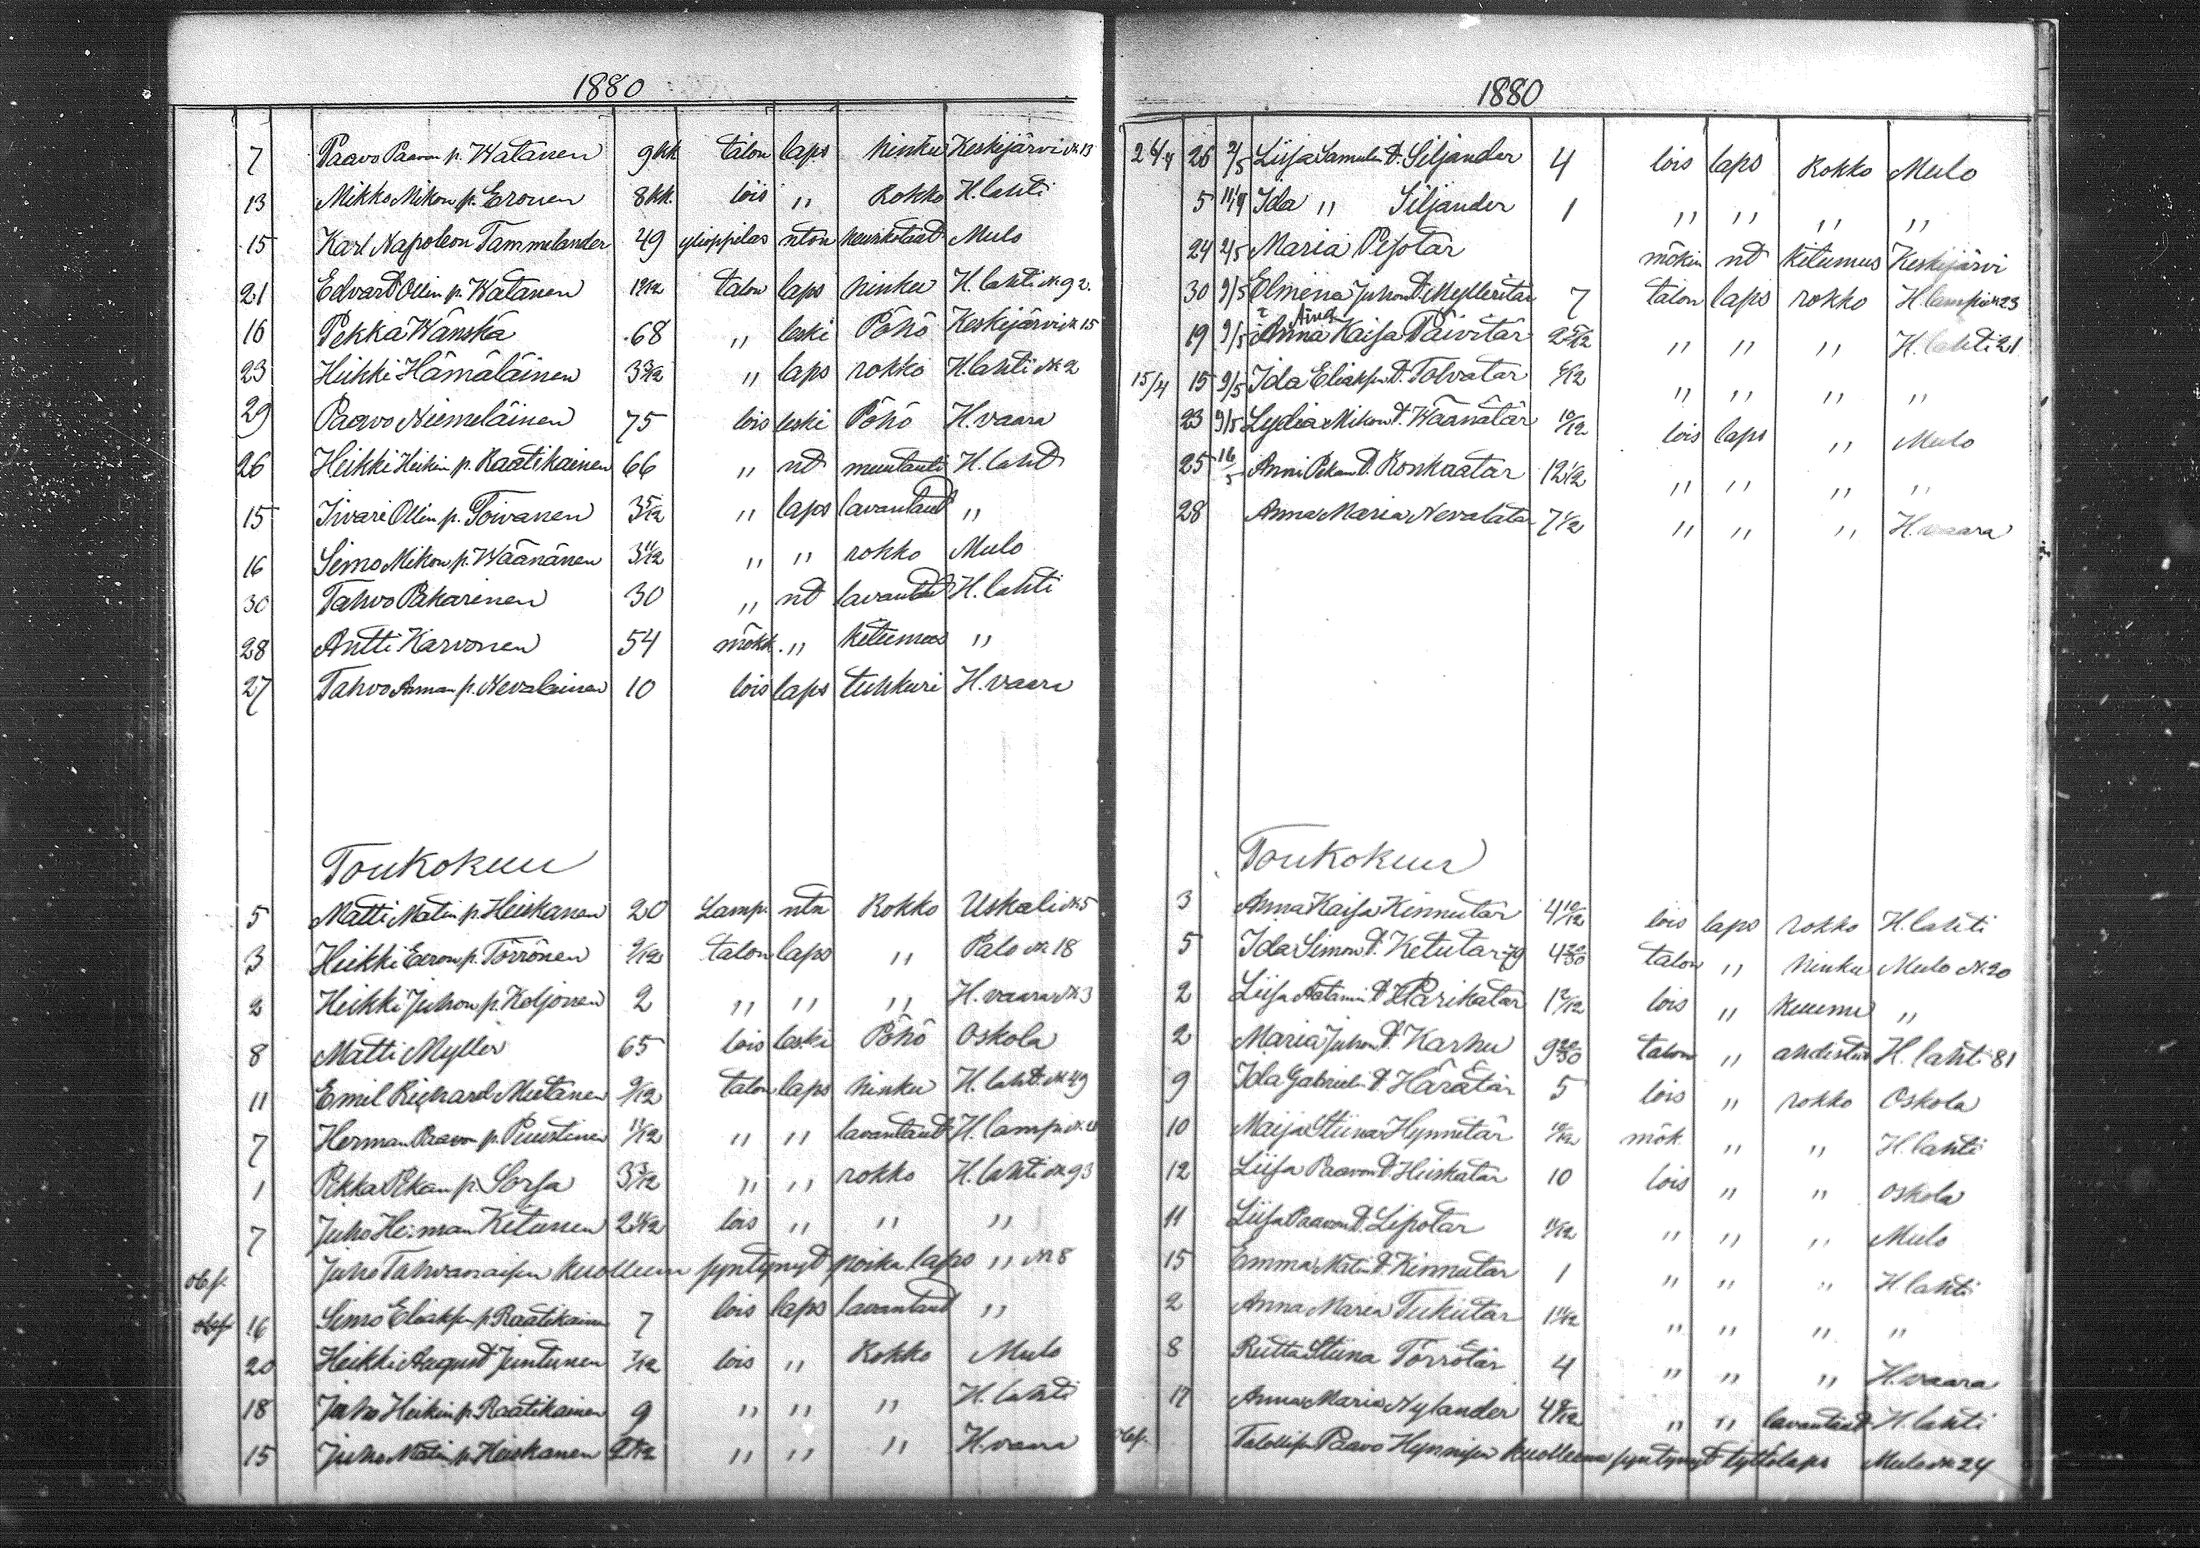 1880
7 Paavo Paavon p. Watanen 9 kk talon laps hinku Keskijärvi № 13
13 Mikko Mikon p. Eronen 8 kk. lois " Rokko H. lahti
15 Karl Napoleon Tammelander 49 ylioppilas nton Mulo
21 Edvard Ollin p. Watanen talon laps hinku H. lahti № 92.
16 Pekka Wänskä 68 " leski Pöhö Keskijärvi № 15
23 Heikki Hämäläinen " laps rokko H. lahti № 2
29 Paavo Niemeläinen 75 lois leski Pöhö H. vaara
26 Heikki Heikin p. Raatikainen 66 " nt H. laht
15 Iivari Ollin p. Toivanen 3 5/12 " laps lavantaud "
16 Simo Mikon p. Wäänänen 3 11/12 " " rokko Mulo
30 Tahvo Pakarinen 30 " nt lavantaud H. lahti
28 Antti Karvonen 54 mökk. " kitumus "
27 Tahvo Annan p. Nevalainen 10 lois laps tuhkuri H. vaara
Toukokuu
5 Matti Matin p. Heiskanen 20 Lamp. ntn Rokko Uskali № 5
3 Heikki Eeron p. Törrönen 9/12 talon laps " Palo № 18
2 Heikki Juhon p. Koljonen 2 " " " H. vaara № 3
8 Matti Myller 65 lois leski Pöhö Oskola
11 Emil Richard Mutanen 9/12 talon laps hinku H. laht. № 49
7 Herman Paavon p. Puustinen 11/12 " " lavantaud H. lampi
1 Pekka Pekan p. Sorsa " " rokko H. lahti № 93
7 Juho Herman Ketunen 2 11/12 lois " " "
obs. Juho Tahvanaisen kuolleena syntynyt poika laps " № 8
16 Simo Eliaksen p. Raatikainen 7 lois laps lavantaud "
20 Heikki August Juntunen 7/12 lois " Rokko Mulo
18 Juho Heikin p. Raatikainen 9 " " " H. lahti
15 Juho Matin p. Heiskanen " " " H. vaara
1880
26/4 26 2/5 Liisa Samulin t. Siljander 4 lois laps Rokko Mulo
5 Ida " Siljander 1 " " " "
24 2/5 Maria Pesotar mökin nt kitumus Keskijärvi
30 9/5 Elmina Juhon t. Mylleritar 7 talon laps rokko H. lampi № 23
19 9/5 Anna Kaisa Päivitär " " " H. lahti 21
15/4 15 9/5 Ida Eliaksen t. Tolvatar " " " "
23 9/5 Lydia Mikon t. Wäänätär 10/12 lois laps " Mulo
25 16/5 Anni Pekan t. Konkaatar " " " "
28 Anna Maria Nevalatar " " " H. vaara
Toukokuu
3 Anna Kaisa Kinnutar 4 10/12 lois laps rokko H. lahti
5 Ida Simon t. Ketutar talon " hinku Mulo № 20
2 Liisa Aatamin t. Parikatar lois " kuume "
2 Maria Juhon t. Karhu 9 20/30 talon " ahdistus H. lahti 81
9 Ida Gabrielin t. Härätär 5 lois " rokko Oskola
10 Maija Stiina Hynnetär 10/12 mök. " " H. lahti
12 Liisa Paavon t. Heiskatar 10 lois " " Oskola
11 Liisa Paavon t. Lipotar 11/12 " " " Mulo
15 Emma Matin t. Kinnutar 1 " " " H. lahti
2 Anna Maria Tukiutar 1 11/12 " " " "
8 Riitta Stiina Törrötär 4 " " " H. vaara
17 Anna Maria Nylander " " lavantaud. H. lahti
obs. Talollisen Paavo Hynnisen kuolleena syntynyt tyttölaps Mulo № 24